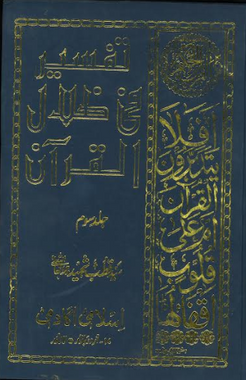 تفسير
في ظلال
القرآن
جلد سوم
سید قطب شہید
اسلامی اکادمی
افلا
يتدبرون
القرآن
ام على
قلوب
اقفالها